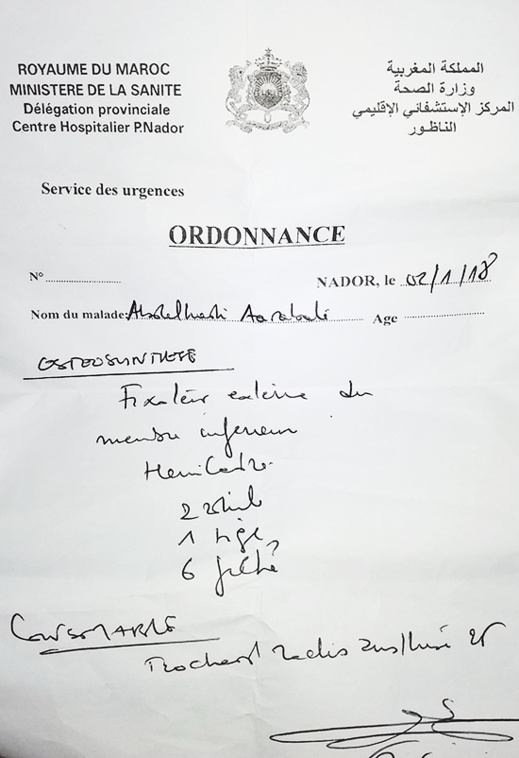 ROYAUME DU MAROC
MINISTERE DE LA SANTE
Délégation provinciale
Centre Hospitalier P.Nador
المملكة المغربية
وزارة الصحة
المركز الإستشفائي الإقليمي
الناظور
Service des urgences
ORDONNANCE
N°
NADOR, le 02/1/18
Nom du malade: Age
OSTEOSYNTHESE
Fixateur externe du
membre inferieur
Hemi Cadre
2
1 tige
6 fiche
CONSOMABLE